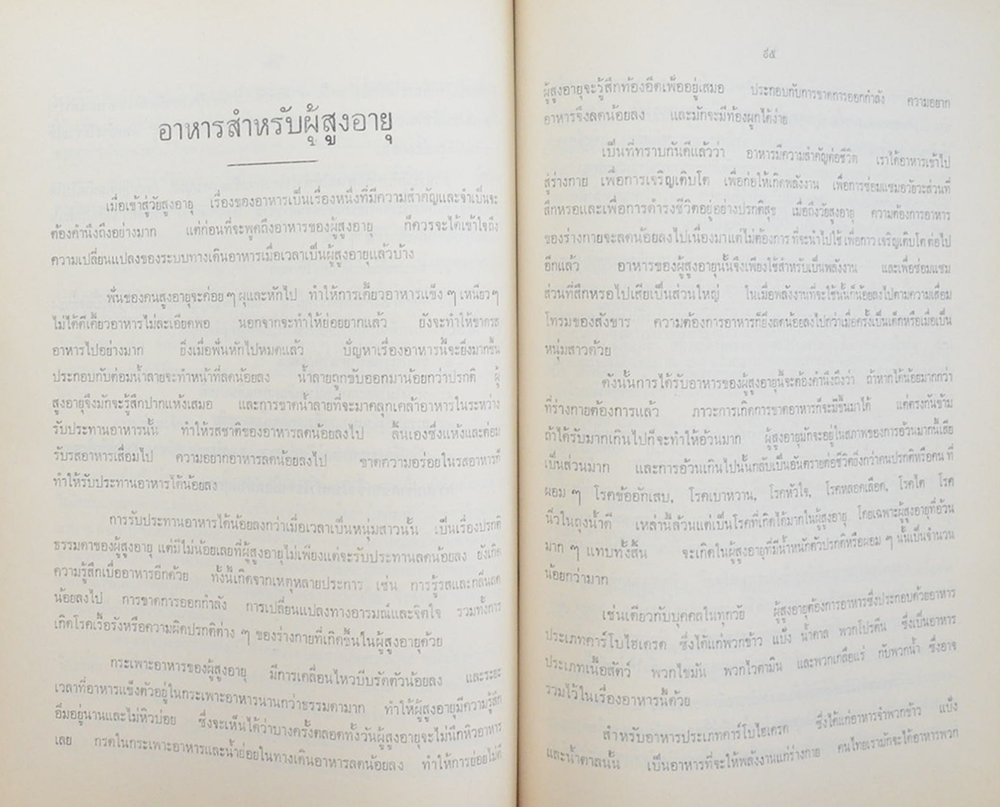 อาหารสำหรับผู้สูงอายุ
เมื่อเข้าสู่วัยสูงอายุ เรื่องของอาหารเป็นเรื่องหนึ่งที่มีความสำคัญและจำเป็นจะ
ต้องคำนึงถึงอย่างมาก แต่ก่อนที่จะพูดถึงอาหารของผู้สูงอายุ ก็ควรจะได้เข้าใจถึง
ความเปลี่ยนแปลงของระบบทางเดินอาหารเมื่อเวลาเป็นผู้สูงอายุแล้วบ้าง
ฟันของคนสูงอายุจะค่อย ๆ ผุและหักไป ทำให้การเคี้ยวอาหารแข็ง ๆ เหนียว ๆ
ไม่ได้ดีเคี้ยวอาหารไม่ละเอียดพอ นอกจากจะทำให้ย่อยยากแล้ว ยังจะทำให้ขาดรส
อาหารไปอย่างมาก ยิ่งเมื่อฟันหักไปหมดแล้ว ปัญหาเรื่องอาหารนี้จะยิ่งมากขึ้น
ประกอบกับต่อมน้ำลายจะทำหน้าที่ลดน้อยลง น้ำลายถูกขับออกมาน้อยกว่าปรกติ ผู้
สูงอายุจึงมักจะรู้สึกปากแห้งเสมอ และการขาดน้ำลายที่จะมาคลุกเคล้าอาหารในระหว่าง
รับประทานอาหารนั้น ทำให้รสชาติของอาหารลดน้อยลงไป ลิ้นเองซึ่งแห้งและต่อม
รับรสอาหารเสื่อมไป ความอยากอาหารลดน้อยลงไป ขาดความอร่อยในรสอาหารก็
ทำให้รับประทานอาหารได้น้อยลง
การรับประทานอาหารได้น้อยลงกว่าเมื่อเวลาเป็นหนุ่มสาวนั้น เป็นเรื่องปรกติ
ธรรมดาของผู้สูงอายุ แต่มีไม่น้อยเลยที่ผู้สูงอายุไม่เพียงแต่จะรับประทานลดน้อยลง ยังเกิด
ความรู้สึกเบื่ออาหารอีกด้วย ทั้งนี้เกิดจากเหตุหลายประการ เช่น การรู้รสและกลิ่นลด
น้อยลงไป การขาดการออกกำลัง การเปลี่ยนแปลงทางอารมณ์และจิตใจ รวมทั้งการ
เกิดโรคเรื้อรังหรือความผิดปรกติต่าง ๆ ของร่างกายที่เกิดขึ้นในผู้สูงอายุด้วย
กระเพาะอาหารของผู้สูงอายุ มีการเคลื่อนไหวบีบรัดตัวน้อยลง และระยะ
เวลาที่อาหารแข็งตัวอยู่ในกระเพาะอาหารนานกว่าธรรมดามาก ทำให้ผู้สูงอายุมีความรู้สึก
อิ่มอยู่นานและไม่หิวบ่อย ซึ่งจะเห็นได้ว่าบางครั้งตลอดทั้งวันผู้สูงอายุจะไม่นึกหิวอาหาร
เลย กรดในกระเพาะอาหารและน้ำย่อยในทางเดินอาหารลดน้อยลง ทำให้การย่อยไม่ดี
๙๕
ผู้สูงอายุจะรู้สึกท้องอืดเฟ้ออยู่เสมอ ประกอบกับการขาดการออกกำลัง ความอยาก
อาหารจึงลดน้อยลง และมักจะมีท้องผูกได้ง่าย
เป็นที่ทราบกันดีแล้วว่า อาหารมีความสำคัญต่อชีวิต เราได้อาหารเข้าไป
สู่ร่างกาย เพื่อการเจริญเติบโต เพื่อก่อให้เกิดพลังงาน เพื่อการซ่อมแซมอวัยวะส่วนที่
สึกหรอและเพื่อการดำรงชีวิตอยู่อย่างปรกติสุข เมื่อถึงวัยสูงอายุ ความต้องการอาหาร
ของร่างกายจะลดน้อยลงไปเนื่องมาแต่ไม่ต้องการที่จะนำไปใช้เพื่อการเจริญเติบโตต่อไป
อีกแล้ว อาหารของผู้สูงอายุนั้นจึงเพียงใช้สำหรับเป็นพลังงาน และเพื่อซ่อมแซม
ส่วนที่สึกหรอไปเสียเป็นส่วนใหญ่ ในเมื่อพลังงานที่จะใช้นั้นก็น้อยลงไปตามความเสื่อม
โทรมของสังขาร ความต้องการอาหารก็ยิ่งลดน้อยลงไปกว่าเมื่อครั้งเป็นเด็กหรือเมื่อเป็น
หนุ่มสาวด้วย
ดังนั้นการได้รับอาหารของผู้สูงอายุนี้จะต้องคำนึงถึงว่า ถ้าหากได้น้อยมากกว่า
ที่ร่างกายต้องการแล้ว ภาวะการเกิดการขาดอาหารก็จะมีขึ้นมาได้ แต่ตรงกันข้าม
ถ้าได้รับมากเกินไปก็จะทำให้อ้วนมาก ผู้สูงอายุมักจะอยู่ในสภาพของการอ้วนมากนี้เสีย
เป็นส่วนมาก และการอ้วนเกินไปนั้นกลับเป็นอันตรายต่อชีวิตยิ่งกว่าคนปรกติหรือคนที่
ผอม ๆ โรคข้ออักเสบ, โรคเบาหวาน, โรคหัวใจ, โรคหลอดเลือด, โรคไต โรค
นิ่วในถุงน้ำดี เหล่านี้ล้วนแต่เป็นโรคที่เกิดได้มากในผู้สูงอายุ โดยเฉพาะผู้สูงอายุที่อ้วน
มาก ๆ แทบทั้งสิ้น จะเกิดในผู้สูงอายุที่มีน้ำหนักตัวปรกติหรือผอม ๆ นั้นเป็นจำนวน
น้อยกว่ามาก
เช่นเดียวกับบุคคลในทุกวัย ผู้สูงอายุต้องการอาหารซึ่งประกอบด้วยอาหาร
ประเภทคาร์โบไฮเดรต ซึ่งได้แก่พวกข้าว แป้ง น้ำตาล พวกโปรตีน ซึ่งเป็นอาหาร
ประเภทเนื้อสัตว์ พวกไขมัน พวกไวตามิน และพวกเกลือแร่ กับพวกน้ำ ซึ่งอาจ
รวมไว้ในเรื่องอาหารนี้ด้วย
สำหรับอาหารประเภทคาร์โบไฮเดรต ซึ่งได้แก่อาหารจำพวกข้าว แป้ง
และน้ำตาลนั้น เป็นอาหารที่จะให้พลังงานแก่ร่างกาย คนไทยเรามักจะได้อาหารพวก